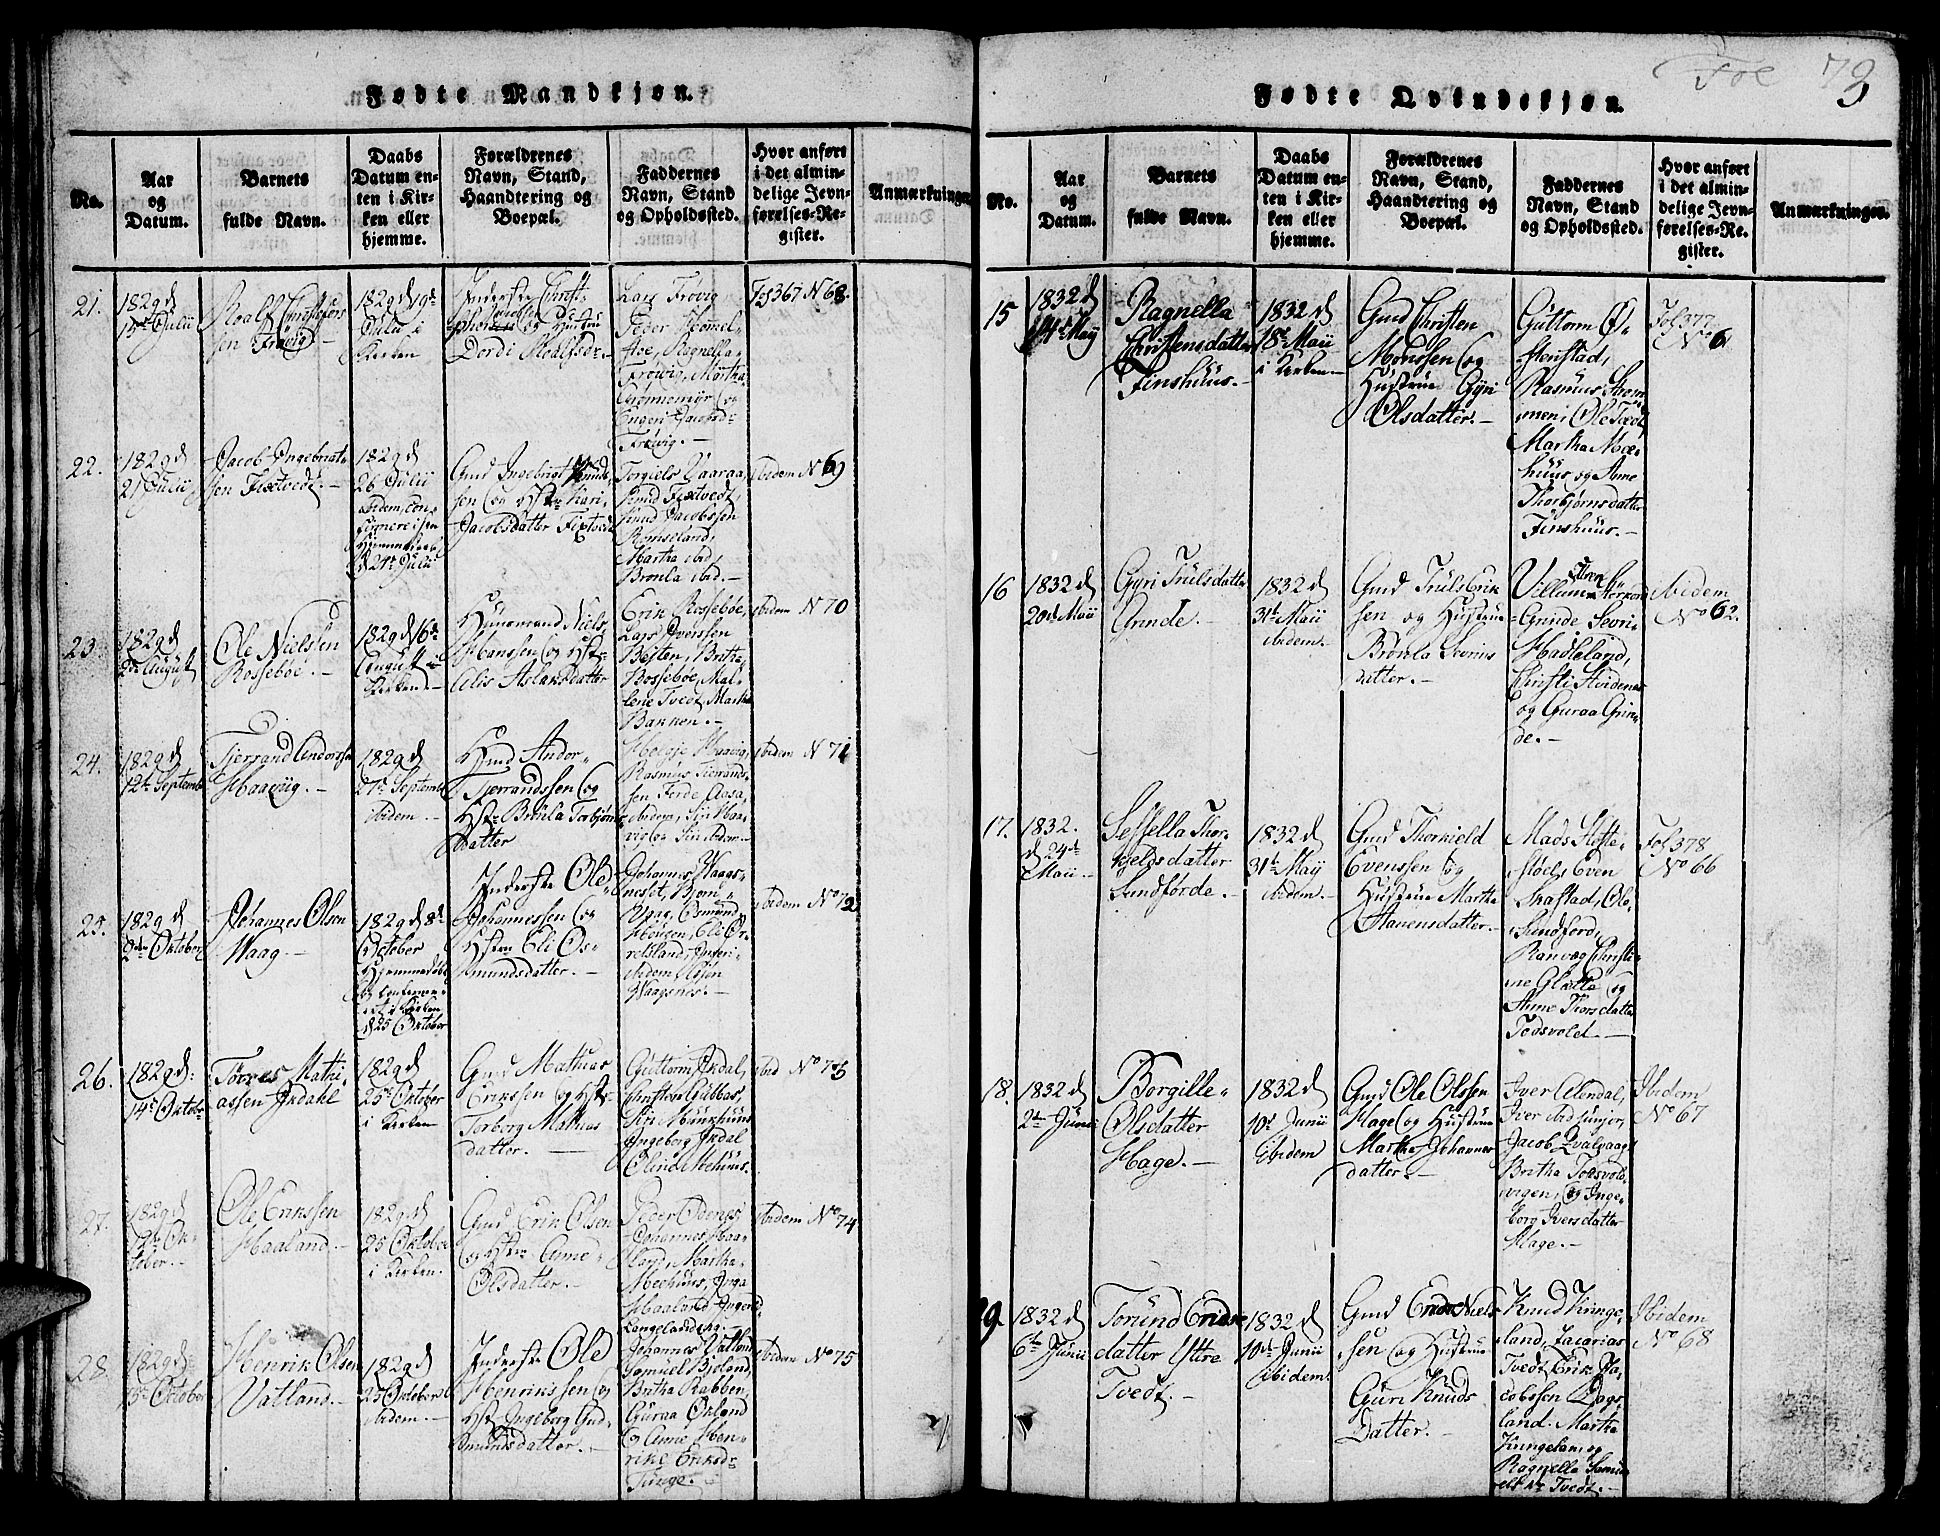 Fødte Mandkjøn.
No.
Aar
og
Datum.
Barnets
fulde Navn.
Daabs
Datum en-
ten i Kir-
ken eller
hjemme.
Forældrenes
Navn, Stand,
Haandtering og
Boepæl.
Faddernes
Navn, Stand
og Opholdssted.
Hvor anført
i det almin-
delige Jevn-
førelses-Re-
gister.
Anmærkninger
21.
1829 d
Julii
Roalf Christophers
sen Frøvig
1829 d 19de
Julii i
Kirken
Inderste Christ-
Jacobsen
og Hustru
Dordi Roalfsdr.
Lars Frøvig
Peder Hommel-
stoe, Ragnella
Frøwig, Martha
Grønnemyr og
Engeri Jacobsd-
Frøvig. -
Fol 367 N 68.
22.
1829 d
21 Julii
Jacob Ingebrigt-
sen Fixtvedt. -
1829 d
26 Julii
d 21 Julii
Gmd Ingebrigt Knud-
sen og Hstr Kari
Jacobsdatter Fixtvedt
Torgiels Vaaraa,
Knud Fixtvedt,
Knud Jacobssen
Romseland,
Martha ibd,
Brønla ibd. -
Ibidem N 69
23.
1829 d
2de August
Ole Nielssen
Rossebøe. -
1829 d 16de
August i
Kirken. -
Huusmand Niels
Hanssen og Hstr
Alis Aslansdatter
Erik Rossebøe,
Lars Iverssen
Besten, Britha
Rossebøe, Ma-
lene Tvedt, Martha
Bakken. -
Ibidem N 70
24.
1829 d
12te Septemb
Tjerrand Andorsen
Haavig. -
1829 d
27de Septemb
ibidem. -
Gmd Andor
Tjerrandssen og
Hstr Brønla Torbjørn
datter
Helgje Haavig,
Rasmus Tierands-
sen Førde, Aasa
ibidem, Siri Haa-
vig og Siri ibidem
Ibidem N 71
25.
1829 d
8de Oktober
Johannes Olsen
Waag. -
1829 d 8de
October
Hjemmedøbt
i Kirken
d 25 Oktober
Inderste Ole
Johannessen og
Hstr Eli Os-
mundsdatter. -
Johannes Waags-
neslet, Bjørn
Vaag, Osmund
Eli Ør-
retsland, Ingeri
ibidem,
Waagsnes. -
Ibidem No 72
26.
1829 d:
14de Oktobr
Tørres Mathi-
assen Ikdahl
1829 d
25de Oktober
i Kirken
Gmd Mathias
Erikssen og Hstr
Torborg Mathias
datter. -
Guttorm Ikdal,
Christopher
Siri Munkhuus
Ingeborg Ikdal
Mehuus.
Ibid No 73
27.
1829 d
12te Ok-
tober. -
Ole Erikssen
Haaland. -
1829 d
25 Oktober
i Kirken.
Gmd Erik Olsen
og Hstr Anne
Olsdatter. -
Peder Ødenes,
Johannes Haa-
land, Martha
Meehuus, Inga
Haaland, Ingeri
Langeland og. -
Ibidem No 74
28.
1829 d
13de Oktober
Henrik Olsen
Vatland. -
1829 d
25 Oktober
ibidem. -
Inderste Ole
Henrikssen og
Hst Ingeborg Gud-
mundsdatter. -
Johannes Vatland
Samuel Bioland,
Britha Rabben,
Guraa Økland
og Anne Hen-
rike Eriksd-
Tunge. -
Ibidem No 75
Fol 73
Fødte Qvindekjøn.
No.
Aar
og
Datum.
Barnets
fulde Navn.
Daabs
Datum en-
ten i Kir-
ken eller
hjemme.
Forældrenes
Navn, Stand,
Haandtering og
Boepæl.
Faddernes
Navn, Stand
og Opholdssted.
Hvor anført
i det almin-
delige Jevn-
førelses-Re-
gister.
Anmærkninger.
15
1832 d
14de Maij
Ragnella
Christensdatter
Finshuus. -
1832 d
18de Maii
i Kirken -
Gmd Christen
Monssen og
Hustrue Gyri
Olsdatter. -
Guttorm Øs-
tenstad,
Rasmus Strøm-
men, Ole Tvedt,
Martha Moe-
huus, og Anne
Thorbjørnsdatter
Finshuus. -
Fol 377
No 6
16
1832 d
20de Maii
Gyri Trulsdatter
Grinde. -
1832 d
31te Maii
ibidem.
Gmd Truls Erik-
sen og Hustrue
Brønla Sevrins
datter. -
Villum
Grinde Sevri-
Hadleland,
Christi Hvidenæs
og Guraa Grin-
de. -
Ibidem
No 62.
17.
1832.
d 24de
Maii -
Sessella Thor-
kjelsdatter
Sundførde. -
1832 d
31te Maij
ibidem. -
Gmd Thorkield
Evenssen og
Hustrue Martha
Hanensdatter. -
Mads Hofte-
støel, Even
Skafstad, Ole
Sundførd,
Ranvæg Christi-
ne Glætte og
Anne Thorsdatter
Todsvold -
Fol 378
No 66
18.
1832 d
2de Junii
Borgille
Olsdatter
Hage. -
1832 d
10de Junii
Ibidem
Gmd Ole Olssen
Hage og Hustrue
Martha Johannes
datter. -
Iver Alendal,
Iver ibd junior,
Jacob Qvalvaag
Britha Todsvold-
vigen, og Inge-
borg Iversdatter
Hage. -
Ibidem
No 67
19.
1832 d
6te Junii
Torund Endre
datter Ystre
Tvedt. -
1832 d
10de Junii
ibidem.
Gmd Endre Niels-
sen og Hustrue
Guri Knuds
Datter. -
Knud Kringe-
land, Zacarias
Tvedt, Erik Ja-
cobssen Dags-
land. Martha
Kringeland og
Ragnella Samu-
elsdr Tvedt. -
Ibidem
No 68